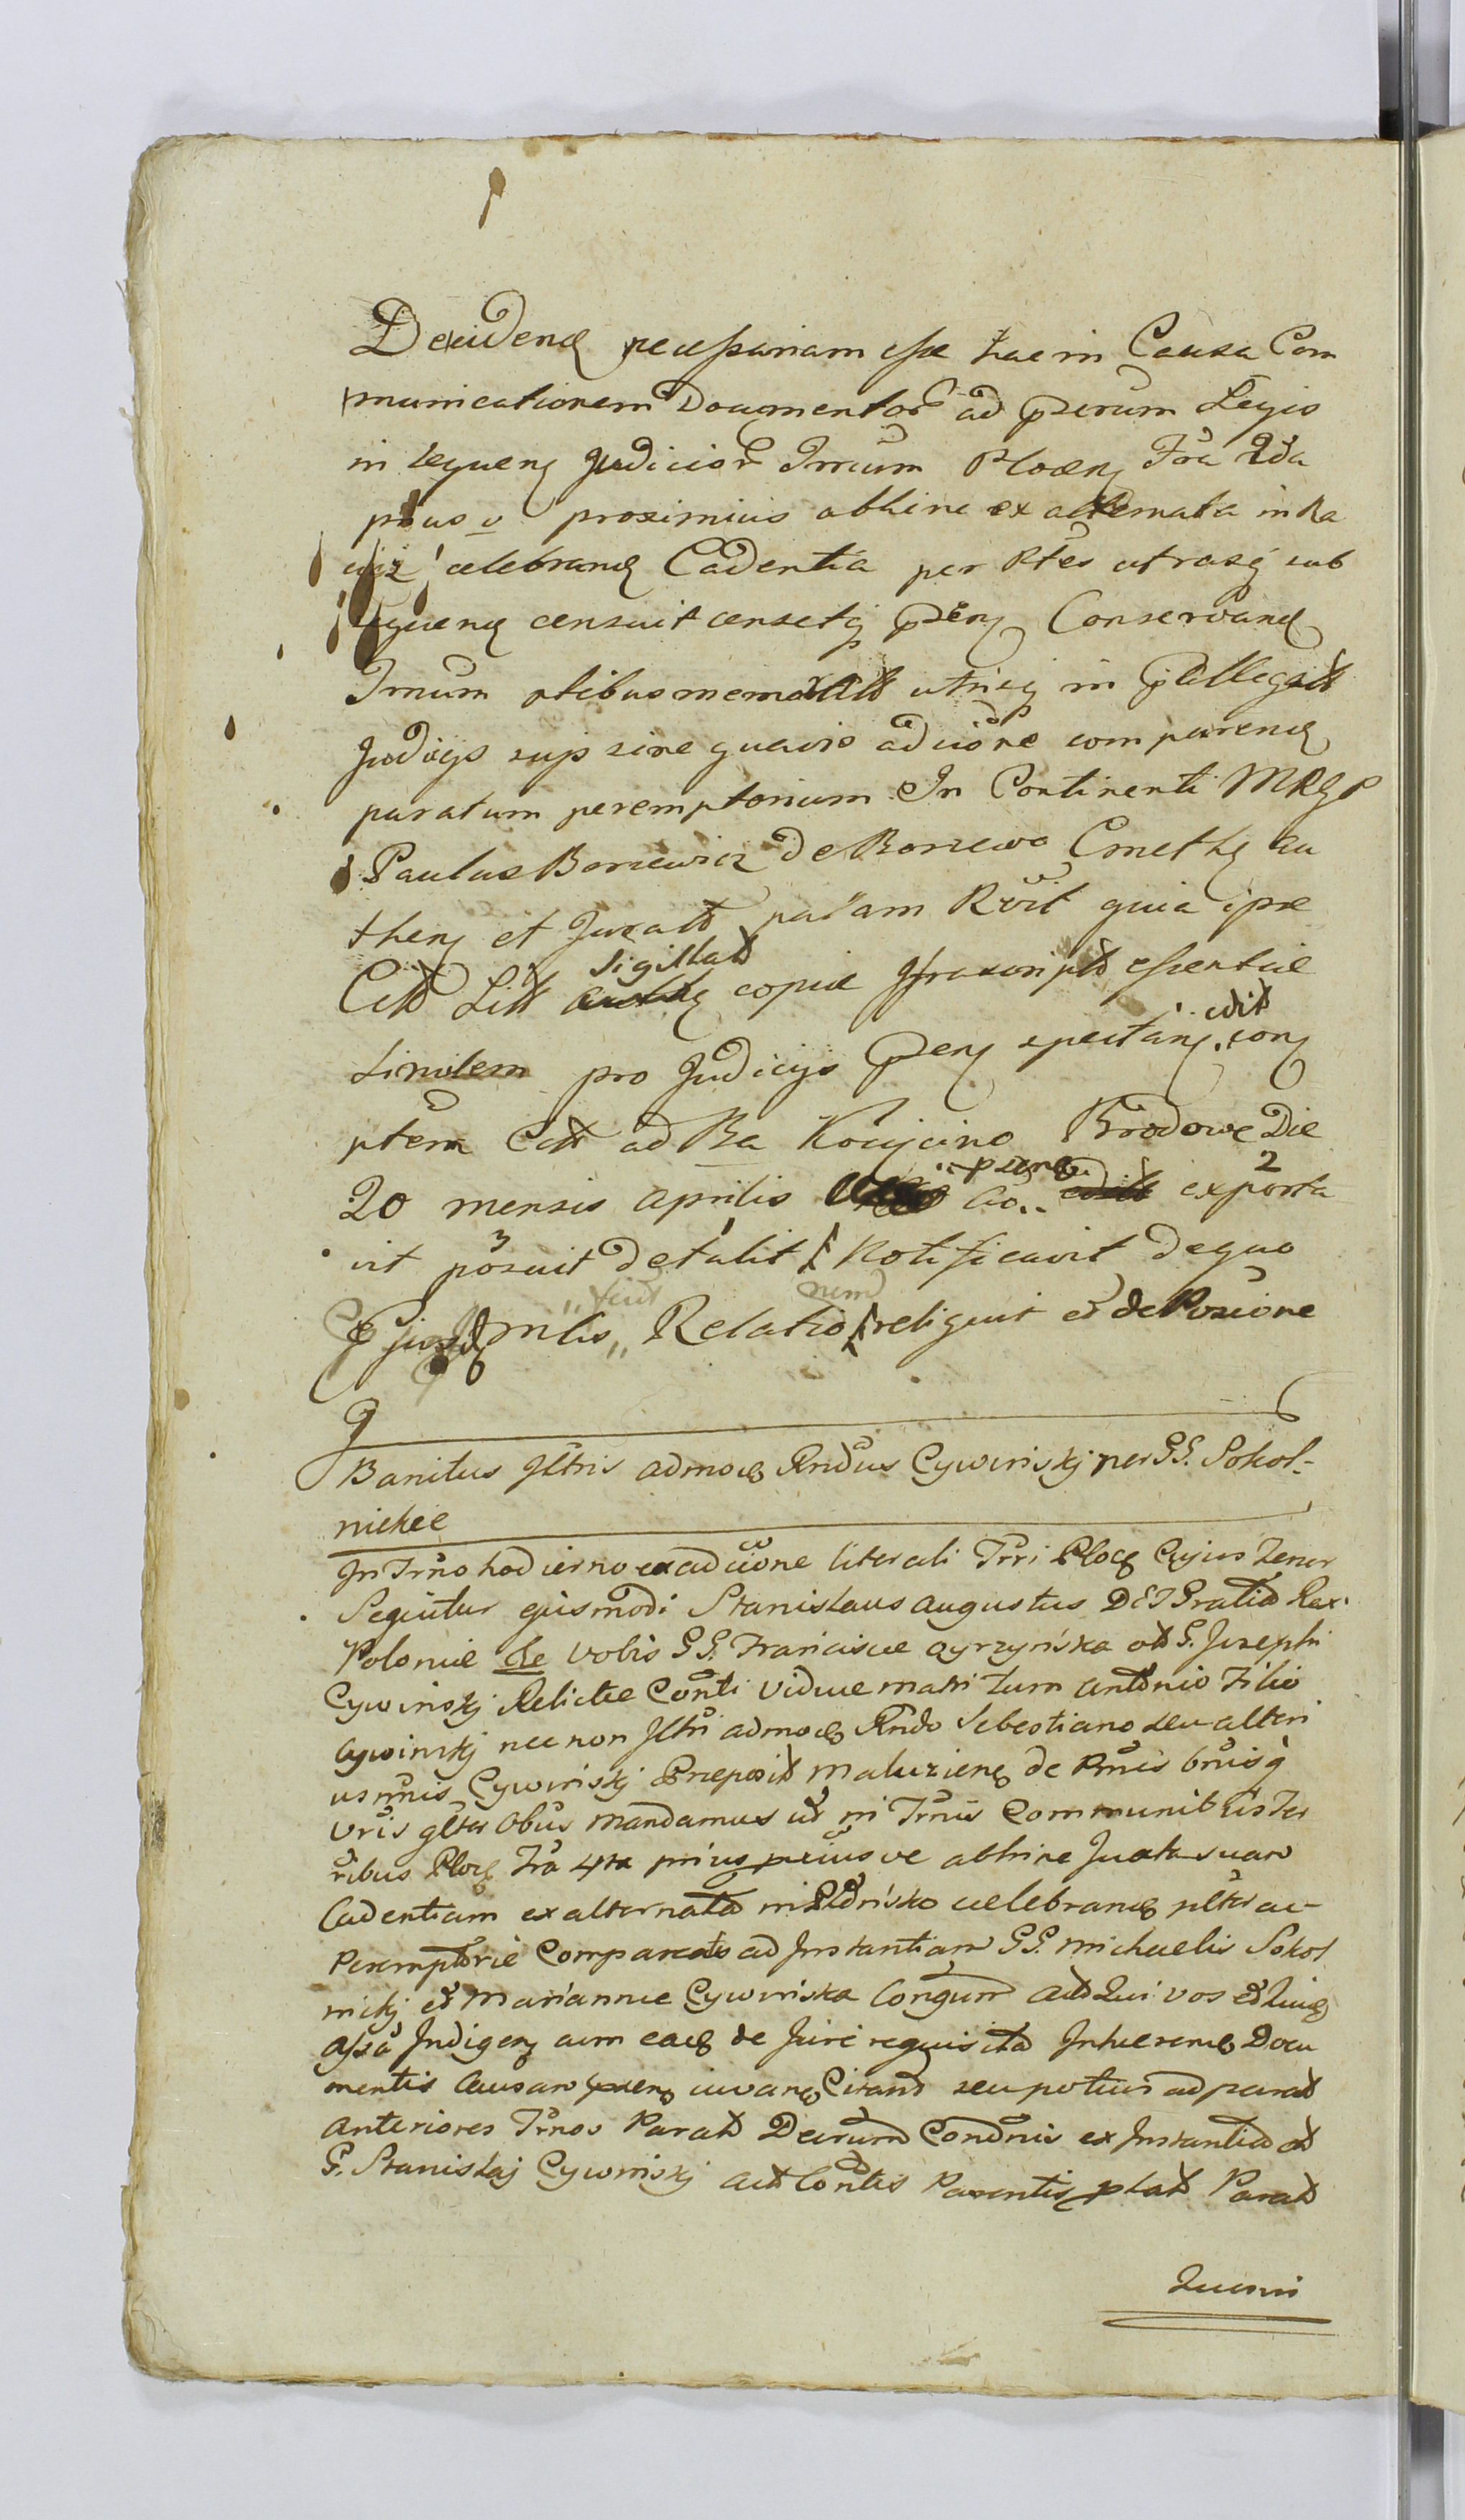 Decidend necessariam esse hac in Causa Com
municationem Documentor ad pserum Legis
in sequen Judicior Trrium Plocen Fra 2da
prius v proximius abhinc ex alternata in Ra
ciąż celebrand Cadentia per Ptes utrasq sub
sequend censuit censetq psen Conservand
Trnum ptibus memorat utrisq in pallegat
Judicijs sup sine quavis adcione comparend
paratum peremptorium In Continenti MRGP
Paulus Borzewicz de Borzewo Cmeth au
then et Jurat palam Rvit quia ipse
Citt Litt sigillatt copiæ transcript essentiæ
Similem pro Judicijs psen spectan edit con
ptem Citt ad Ba Kocięcino Brodowe Die
20 mensis Aprilis Ao psens exporta
vit posuit detulit Notificavit de quo
Ejusd Mlis Relationem reliquit et de Posicione
Banitus Jltris admod Rndus Cywinskj per GG. Sokol-
nickie
In Trno hodierno ex adcione literali Trri Ploc Cujus tenor
Sequitur ejusmodi Stanislaus Augustus DEI Gratia Rex
Poloniæ &e vobis GG. Franciscæ Gyrzyńska ol G. Josephi
Cywinskj Relictæ Conti viduæ matri tum Antonio Filio
Cywinskj nec non Jltri admod Rndo Sebestiano seu alteri
us nnis Cywińskj Præposit Maluzien de Pnis bnis q
vris glter Obus mandamus ut in Trnis Communit Ter
ribus Ploc Fra 4ta prius priusve abhinc Juxta suam
Cadentiam ex alternata in celebrand plter ac
Peremptorie Compareatis ad Instantiam GG. Michaelis Sokol
nickj et Mariannæ Cywińska Congum Act Qui vos
Indigen cum de Jure requisita Inhærend Docu
mentis Causam psen Citand seu potius ad parat
Anteriores Trnos Parat Decrum Condnis ex Instantia ol
G. Stanislaj Cywinskj Act Contis Parentis Parat